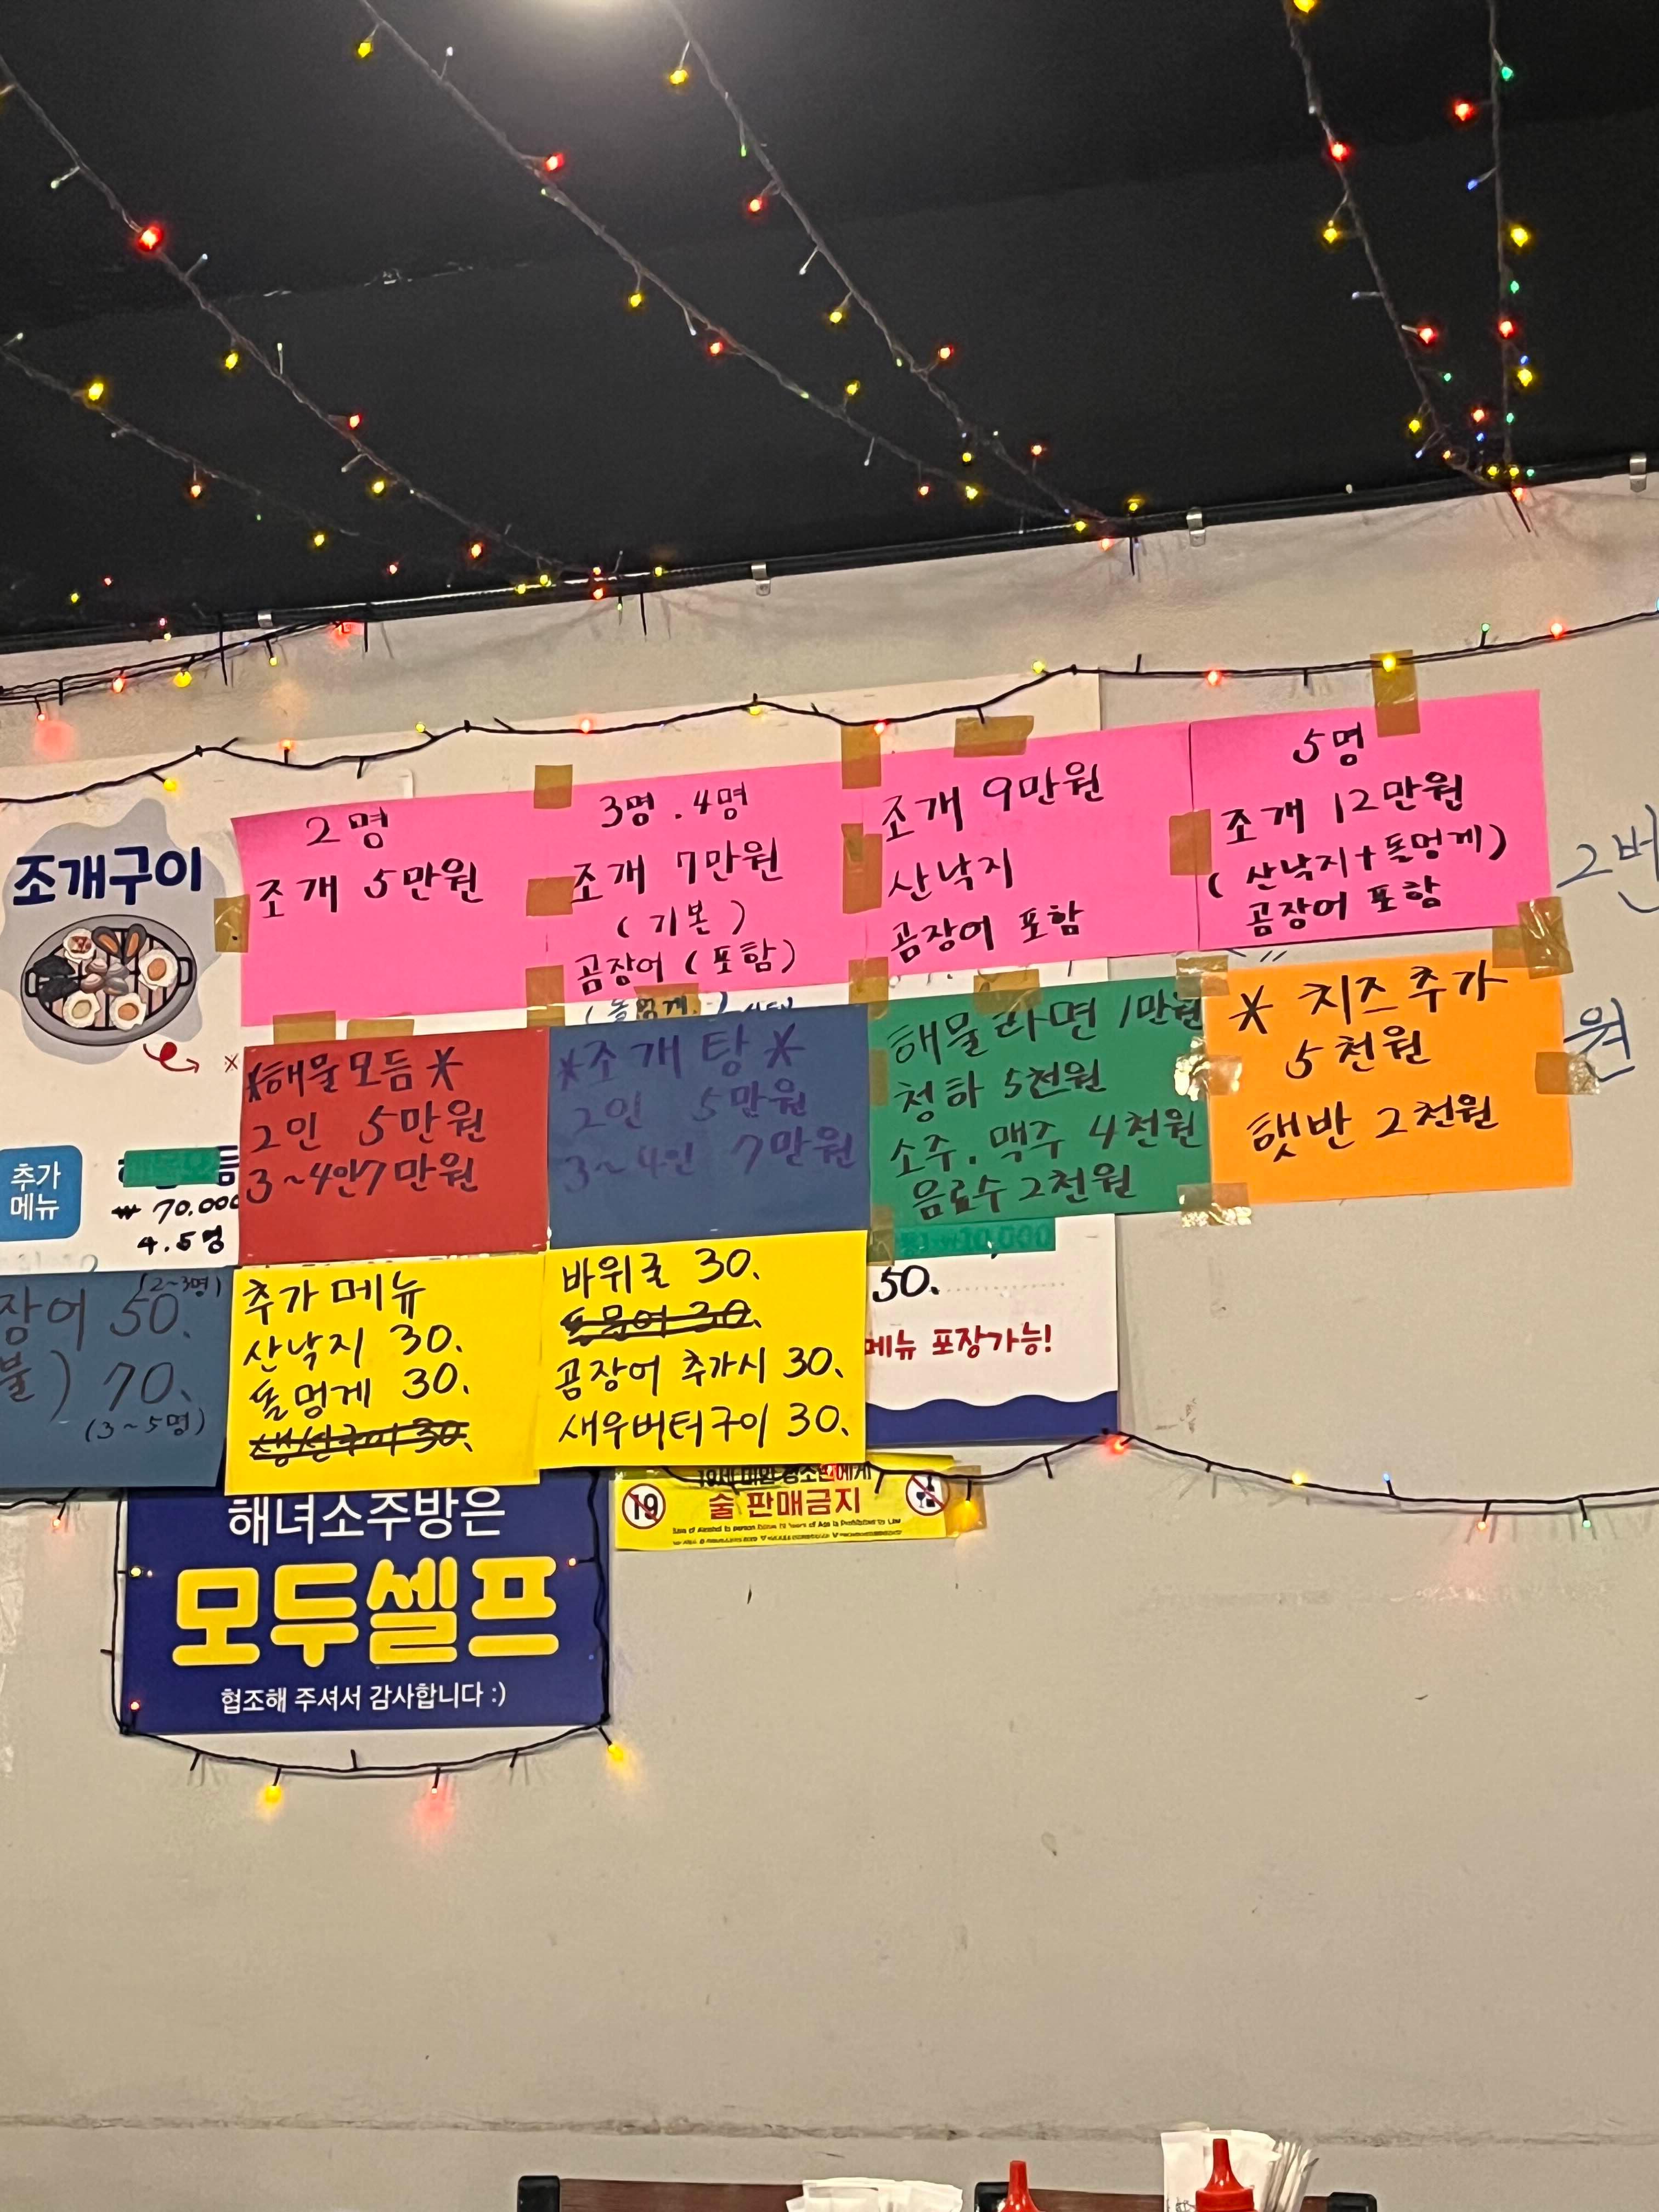 조개구이
2명
조개 5만원
3명. 4명
조개 7만원
(기본)
곰장어 (포함)
조개 9만원
산낙지
곰장어 포함
5명
조개 12만원
(산낙지+돌멍게)
곰장어 포함
2번
원
*해물모듬*
2인 5만원
3~4인 7만원
*조개탕*
2인 5만원
3~4인 7만원
해물라면 1만원
청하 5천원
소주. 맥주 4천원
음료수 2천원
* 치즈추가
5천원
햇반 2천원
추가
메뉴
₩ 70.000
4.5명
장어 50.
(2~3명)
불) 70.
(3~5명)
추가메뉴
산낙지 30.
돌멍게 30.
생선구이 30.
바위굴 30.
돌문어 30.
곰장어 추가시 30.
새우버터구이 30.
50.
메뉴 포장가능!
해녀소주방은
모두셀프
협조해 주셔서 감사합니다 :)
19세 미만 청소년에게
19
술 판매금지